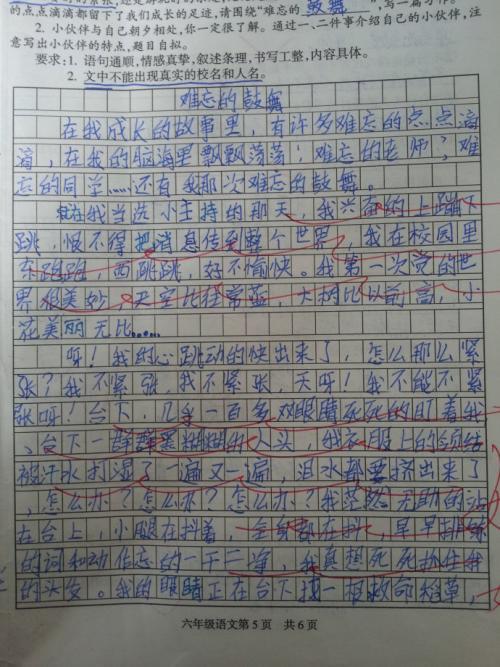 的点点滴滴都留下了我们成长的足迹,请围绕“难忘的 鼓舞 ”,写一篇习作。
2. 小伙伴与自己朝夕相处,你一定很了解。通过一、二件事介绍自己的小伙伴,注
意写出小伙伴的特点,题目自拟。
要求:1. 语句通顺,情感真挚,叙述条理,书写工整,内容具体。
2. 文中不能出现真实的校名和人名。
难忘的鼓舞
在我成长的故事里,有许多难忘的点点滴
滴,在我的脑海里飘飘荡荡:难忘的老师?,难
忘的同学……还有我那次难忘的鼓舞。
在我当选小主持的那天,我兴奋的上蹦下
跳,恨不得把消息传到整个世界,我在校园里
东跑跑,西跳跳,好不愉快。我第一次觉的世
界很美妙,天空比往常蓝,大树比以前高,小
花美丽无比……
呀!我的心跳动的快出来了,怎么那么紧
张?我不紧张,我不紧张,天呀!我不能不紧
张呀!台下,几乎一百多双眼睛死死的盯着我
、台下一群群黑糊糊的人头,我衣服上的领结
被汗水打湿了一遍又一遍,泪水都要挤出来了
,怎么办?怎么办?怎么办?我茫然无助的站
在台上,小腿在抖着,全身都在抖,早早排练
的词和动作忘的一干二净,我真想死死抓住我
的头发。我的眼睛正在台下找一根救命稻草,
六年级语文第5页 共6页